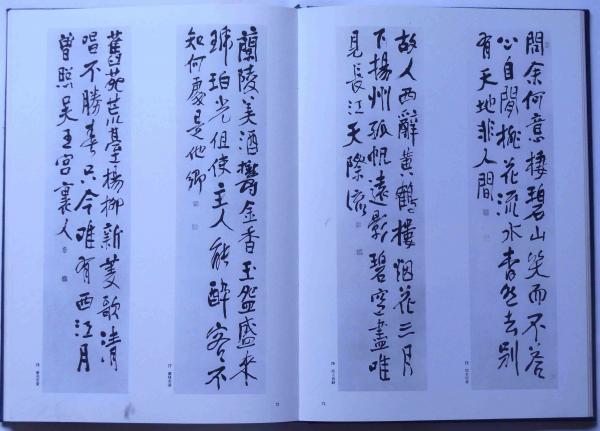 問余何意棲碧山笑而不答
心自閒桃花流水杳然去別
有天地非人間
故人西辭黃鶴樓烟花三月
下揚州孤帆遠影碧空盡唯
見長江天際流
蘭陵美酒鬱金香玉盌盛來
琥珀光但使主人能醉客不
知何處是他鄉
舊苑荒臺楊柳新菱歌清
唱不勝春只今唯有西江月
曾照吳王宮裏人